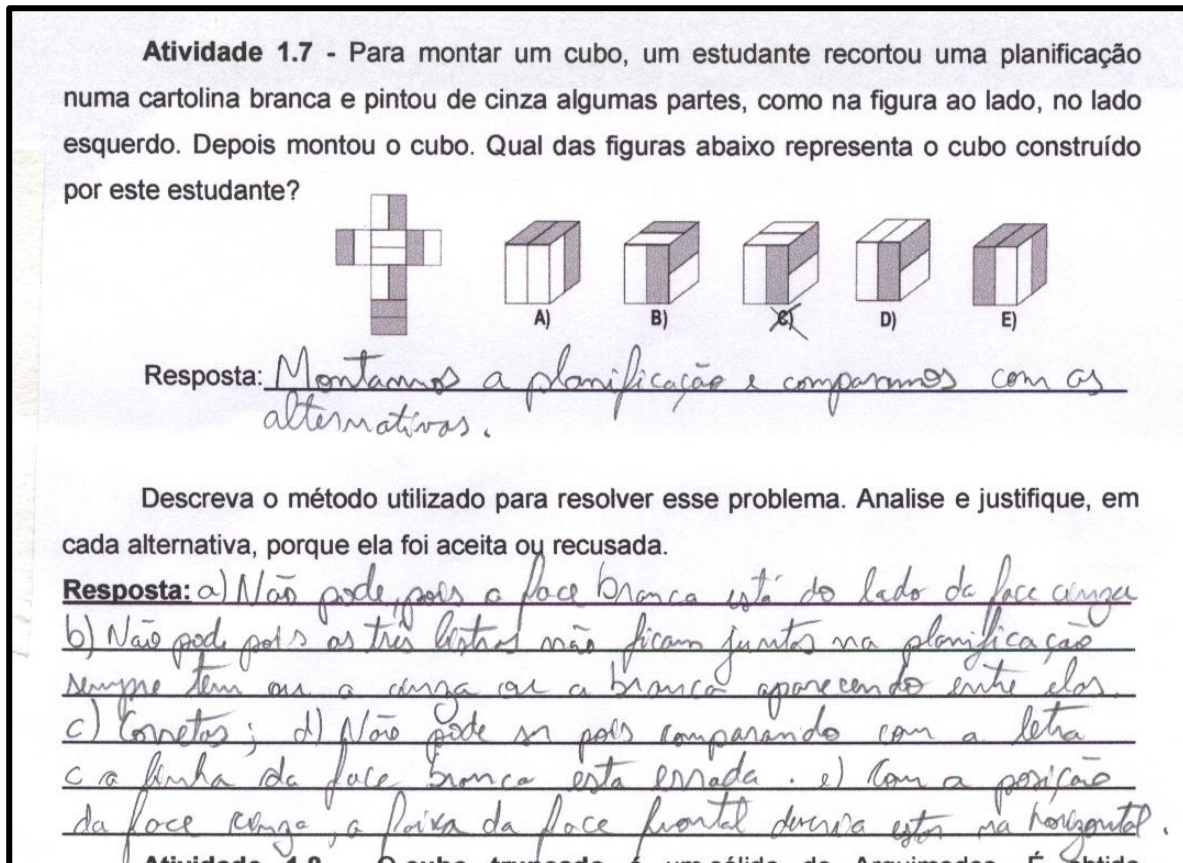 Atividade 1.7 - Para montar um cubo, um estudante recortou uma planificação
numa cartolina branca e pintou de cinza algumas partes, como na figura ao lado, no lado
esquerdo. Depois montou o cubo. Qual das figuras abaixo representa o cubo construído
por este estudante?
A) B) C) D) E)
Resposta: Montamos a planificação e comparamos com as
alternativas.
Descreva o método utilizado para resolver esse problema. Analise e justifique, em
cada alternativa, porque ela foi aceita ou recusada.
Resposta: a) Não pode, pois a face branca está do lado da face cinza
b) Não pode pois as três listras não ficam juntas na planificação
sempre tem ou a cinza ou a branca aparecendo entre elas.
c) Corretas; d) Não pode ser pois comparando com a letra
c a linha da face branca esta errada. e) Com a posição
da face cinza, a faixa da face frontal deveria estar na horizontal.
Atividade 1.8 - O cubo truncado é um sólido de Arquimedes. É obtido